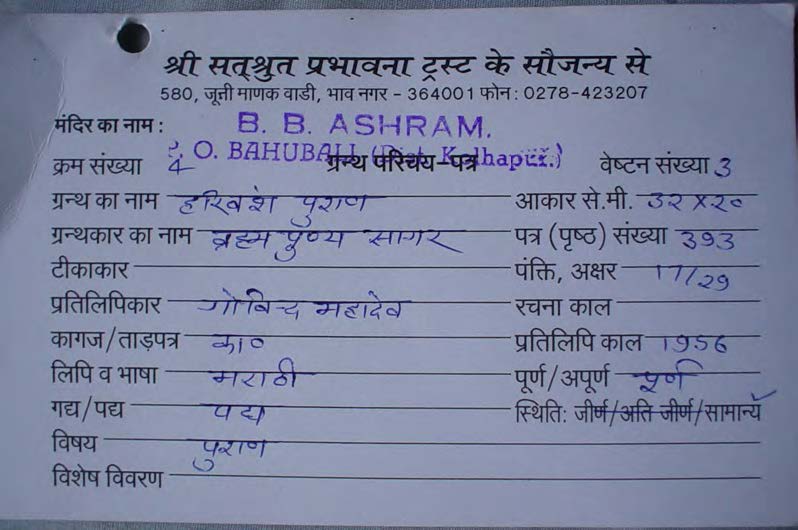 श्री सत्श्रुत प्रभावना ट्रस्ट के सौजन्य से
580, जूनी माणक वाडी, भाव नगर - 364001 फोन : 0278-423207
मंदिर का नाम : B. B. ASHRAM.
P. O. BAHUBALI (Dist. Kolhapur.)
क्रम संख्या 4 ग्रन्थ परिचय-पत्र वेष्टन संख्या 3
ग्रन्थ का नाम हरिवंश पुराण आकार से.मी. ३२ X २०
ग्रन्थकार का नाम ब्रह्म पुण्य सागर पत्र (पृष्ठ) संख्या 393
टीकाकार पंक्ति, अक्षर 17/29
प्रतिलिपिकार गोविन्द महादेव रचना काल
कागज/ताड़पत्र का० प्रतिलिपि काल 1956
लिपि व भाषा मराठी पूर्ण/अपूर्ण पूर्ण
गद्य/पद्य पद्य स्थिति: जीर्ण/अति जीर्ण/सामान्य
विषय पुराण
विशेष विवरण